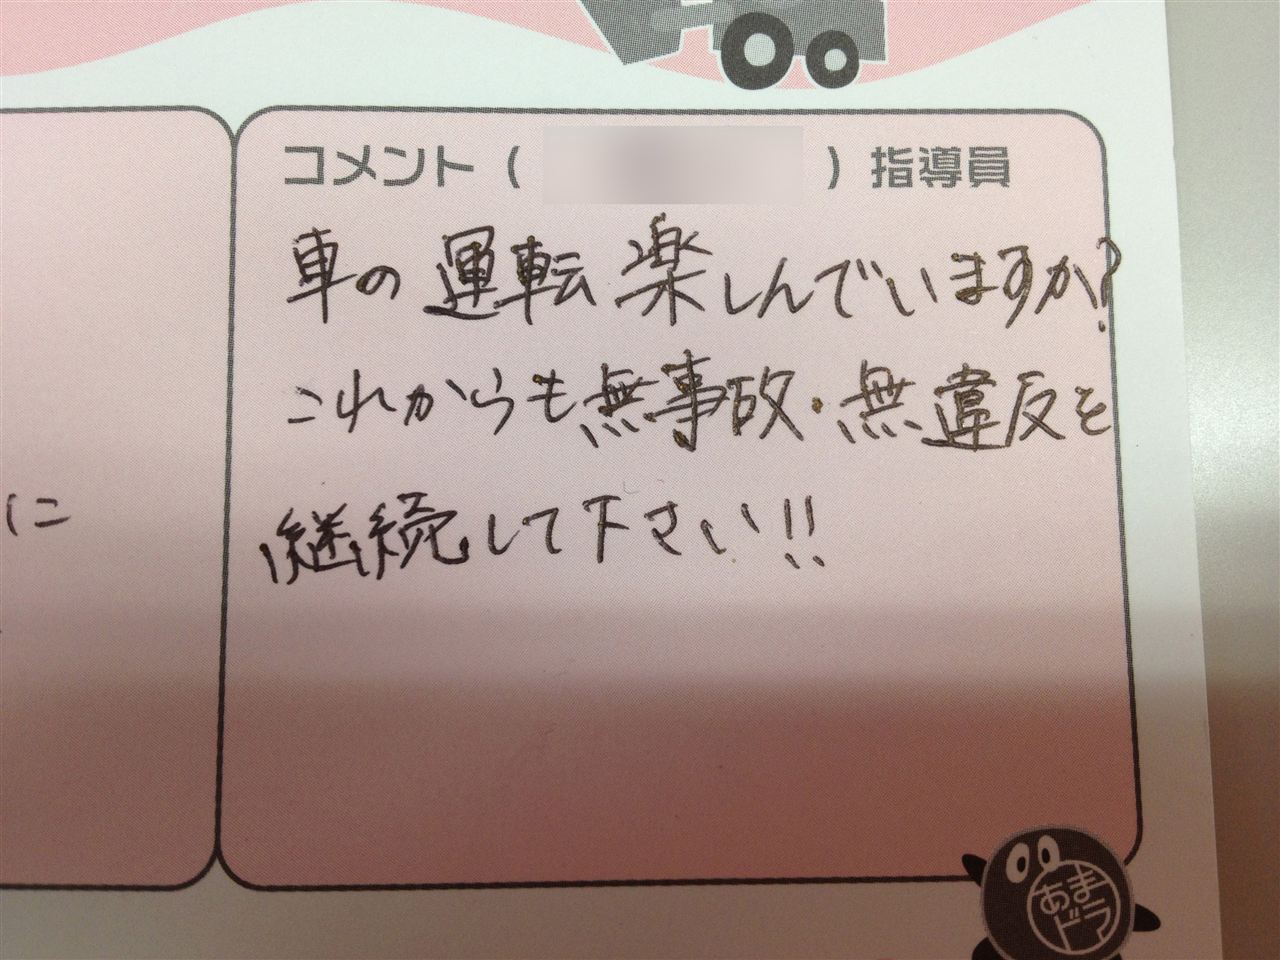 コメント（　）指導員
車の運転楽しんでいますか?
これからも無事故・無違反を
継続して下さい!!
に
あま
ドラ